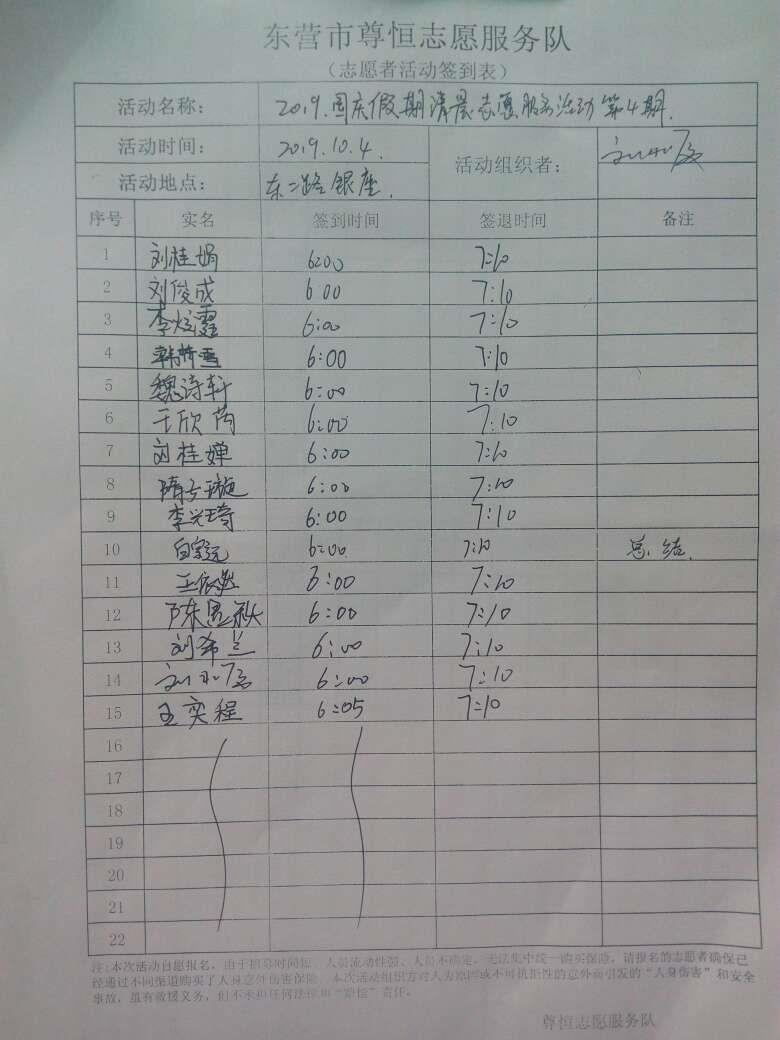 东营市尊恒志愿服务队
（志愿者活动签到表）
活动名称： 2019.国庆假期清晨志愿服务活动第4期.
活动时间： 2019.10.4. 活动组织者：
活动地点： 东二路银座.
序号 实名 签到时间 签退时间 备注
1 刘桂娟 6:00 7:10
2 刘俊成 6 00 7:10
3 李炫霖 6:00 7:10
4 6:00 7:10
5 魏诗轩 6:00 7:10
6 王欣茵 6:00 7:10
7 刘桂婵 6:00 7:10
8 隋 璇 6:00 7:10
9 李兴琦 6:00 7:10
10 白宗远 6:00 7:10 总结.
11 王依 6:00 7:10
12 陈思 6:00 7:10
13 刘希兰 6:00 7:10
14 6:00 7:10
15 王奕程 6:05 7:10
16
17
18
19
20
21
22
注:本次活动自愿报名，由于招募时间短、人员流动性强、人员不确定，无法集中统一购买保险，请报名的志愿者确保已
经通过不同渠道购买了人身意外伤害保险。本次活动组织方对人为原因或不可抗拒性的意外而引发的“人身伤害”和安全
事故，虽有救援义务，但不承担任何法律和“赔偿”责任。
尊恒志愿服务队